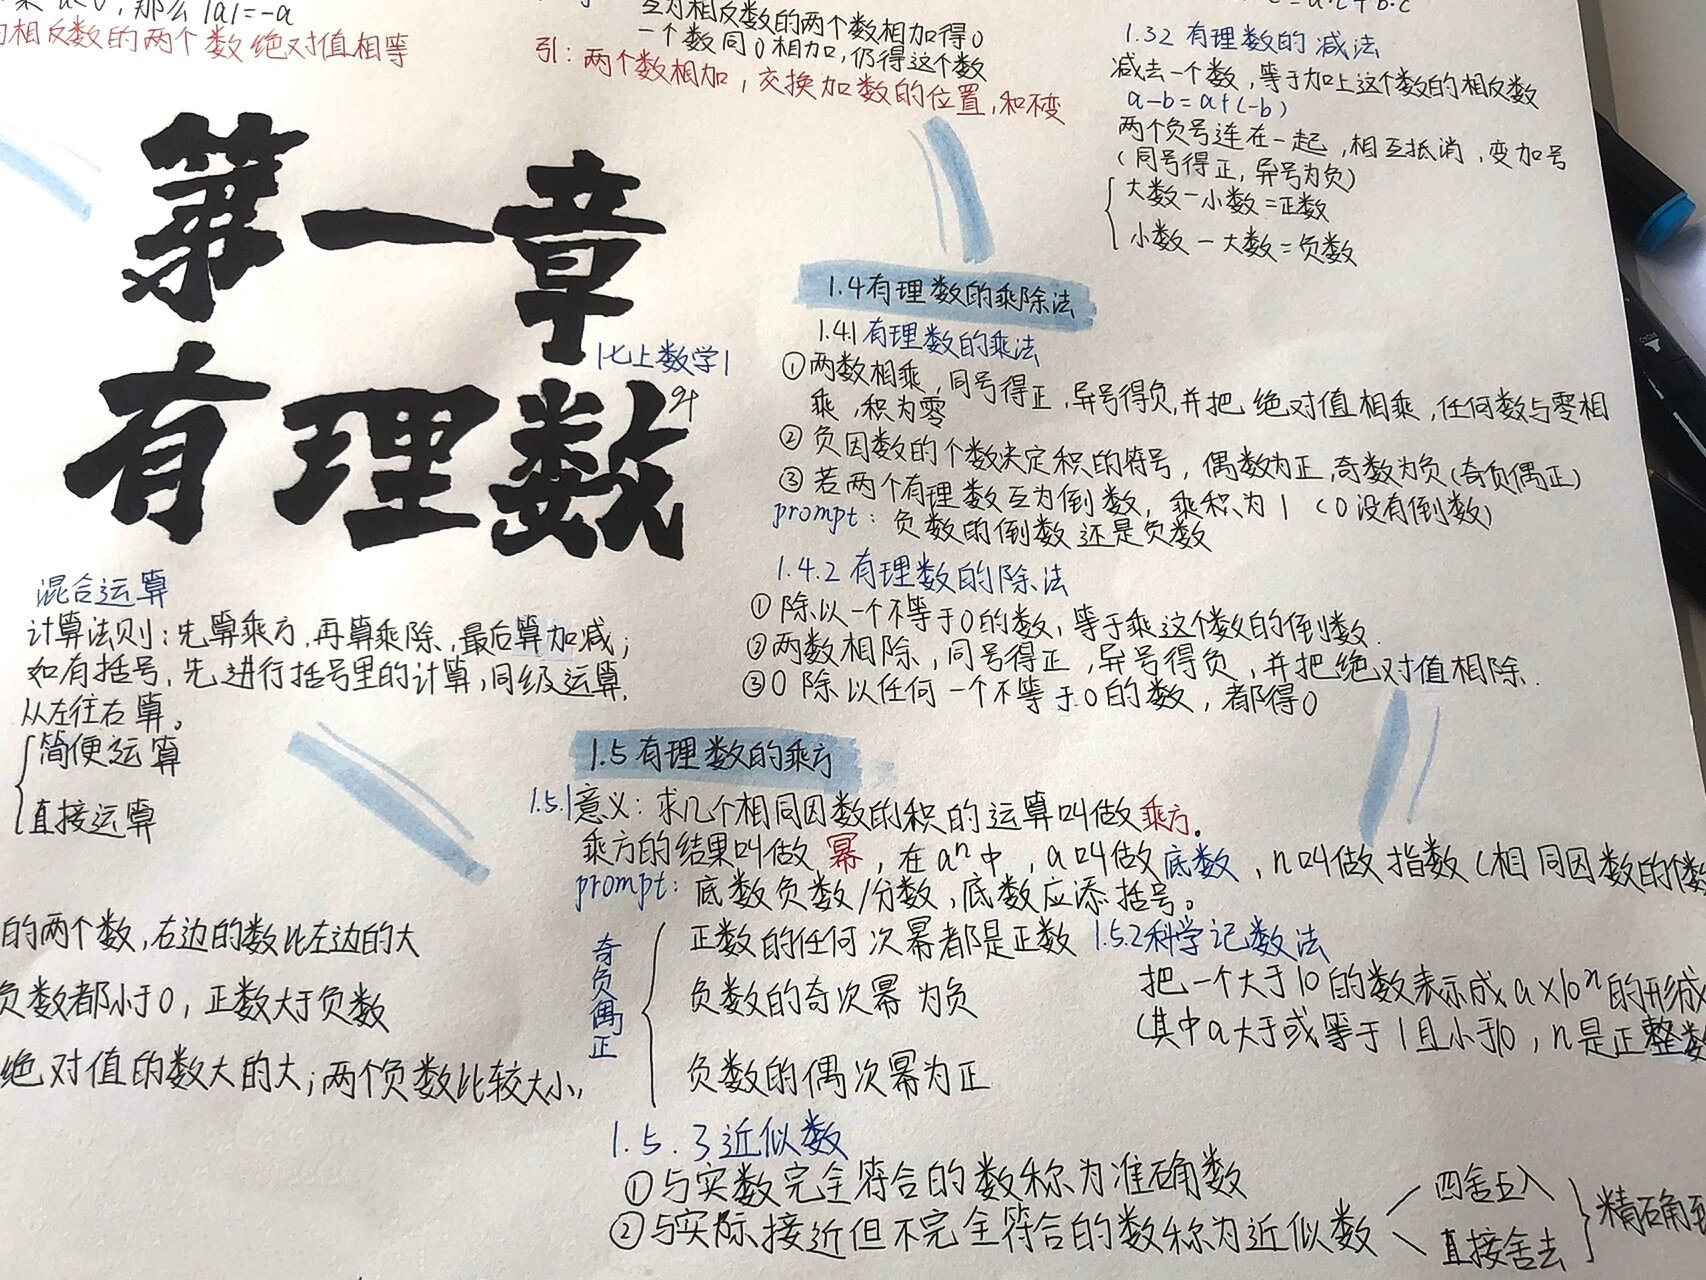 那么|a|=-a
相反数的两个数绝对值相等
互为相反数的两个数相加得0
一个数同0相加,仍得这个数
引:两个数相加,交换加数的位置,和不变
=a·c+b·c
1.32 有理数的减法
减去一个数,等于加上这个数的相反数
a-b=a+(-b)
两个负号连在一起,相互抵消,变加号
(同号得正,异号为负)
大数-小数=正数
小数-大数=负数
第一章
有理数
|七上数学|
1.4有理数的乘除法
1.41有理数的乘法
①两数相乘,同号得正,异号得负,并把绝对值相乘,任何数与零相
乘,积为零
②负因数的个数决定积的符号,偶数为正,奇数为负(奇负偶正)
③若两个有理数互为倒数,乘积为1(0没有倒数)
prompt:负数的倒数还是负数
1.4.2有理数的除法
①除以一个不等于0的数,等于乘这个数的倒数.
②两数相除,同号得正,异号得负,并把绝对值相除.
③0除以任何一个不等于0的数,都得0
混合运算
计算法则:先算乘方,再算乘除,最后算加减;
如有括号,先进行括号里的计算,同级运算,
从左往右算。
简便运算
直接运算
1.5有理数的乘方
1.5.1意义:求几个相同因数的积的运算叫做乘方。
乘方的结果叫做幂,在aⁿ中,a叫做底数,n叫做指数(相同因数的个数
prompt:底数负数/分数,底数应添括号。
奇负偶正
正数的任何次幂都是正数
负数的奇次幂为负
负数的偶次幂为正
1.5.2科学记数法
把一个大于10的数表示成a×10ⁿ的形式
(其中a大于或等于1且小于10,n是正整数
的两个数,右边的数比左边的大
负数都小于0,正数大于负数
绝对值的数大的大;两个负数比较大小,
1.5.3近似数
①与实数完全符合的数称为准确数
②与实际接近但不完全符合的数称为近似数
四舍五入
直接舍去
精确到